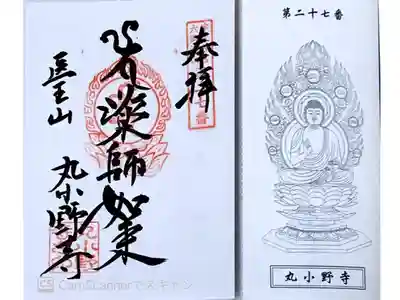 奉拝
薬師如来
医王山
丸小野寺
CamScannerでスキャン
第二十七番
丸小野寺